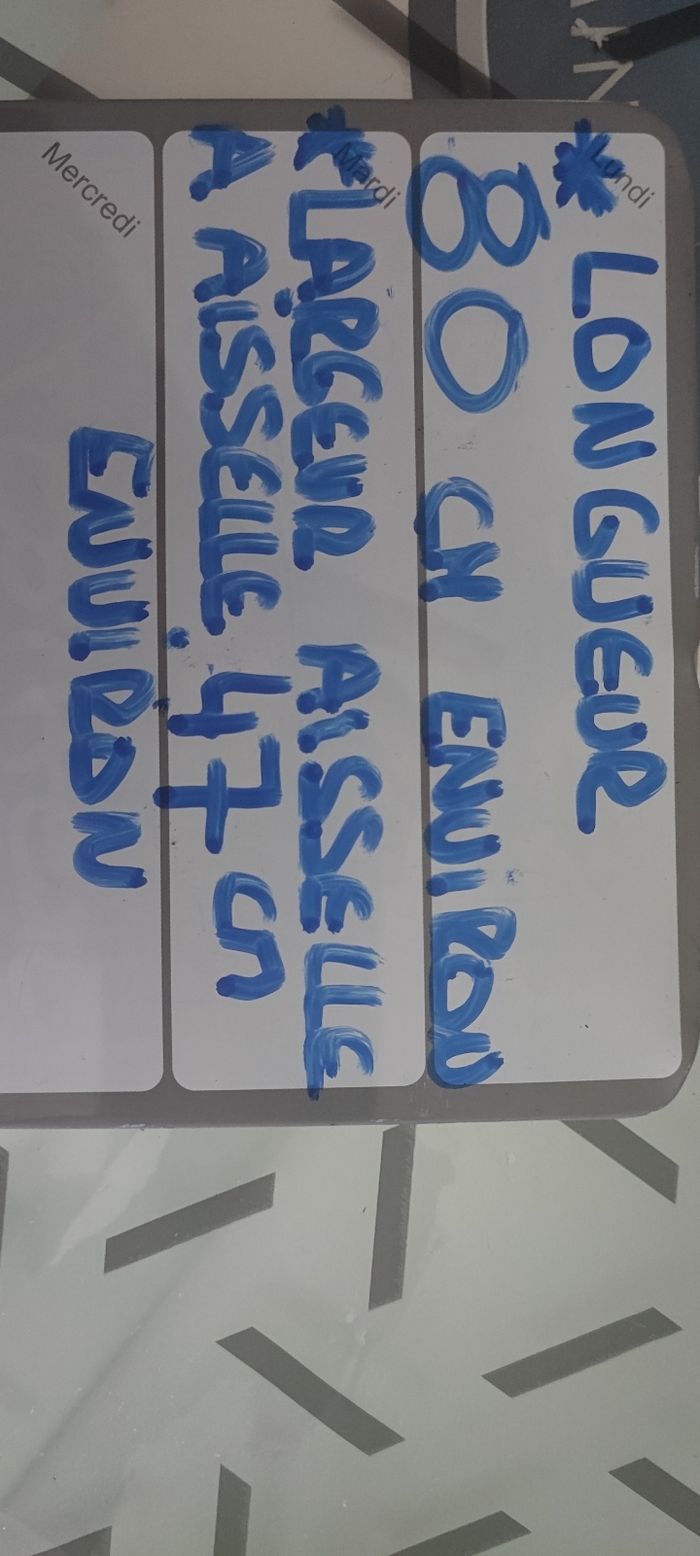 Lundi
* LONGUEUR
80 CM ENVIRON
Mardi
* LARGEUR AISSELLE
A AISSELLE 47 CM
Mercredi
ENVIRON